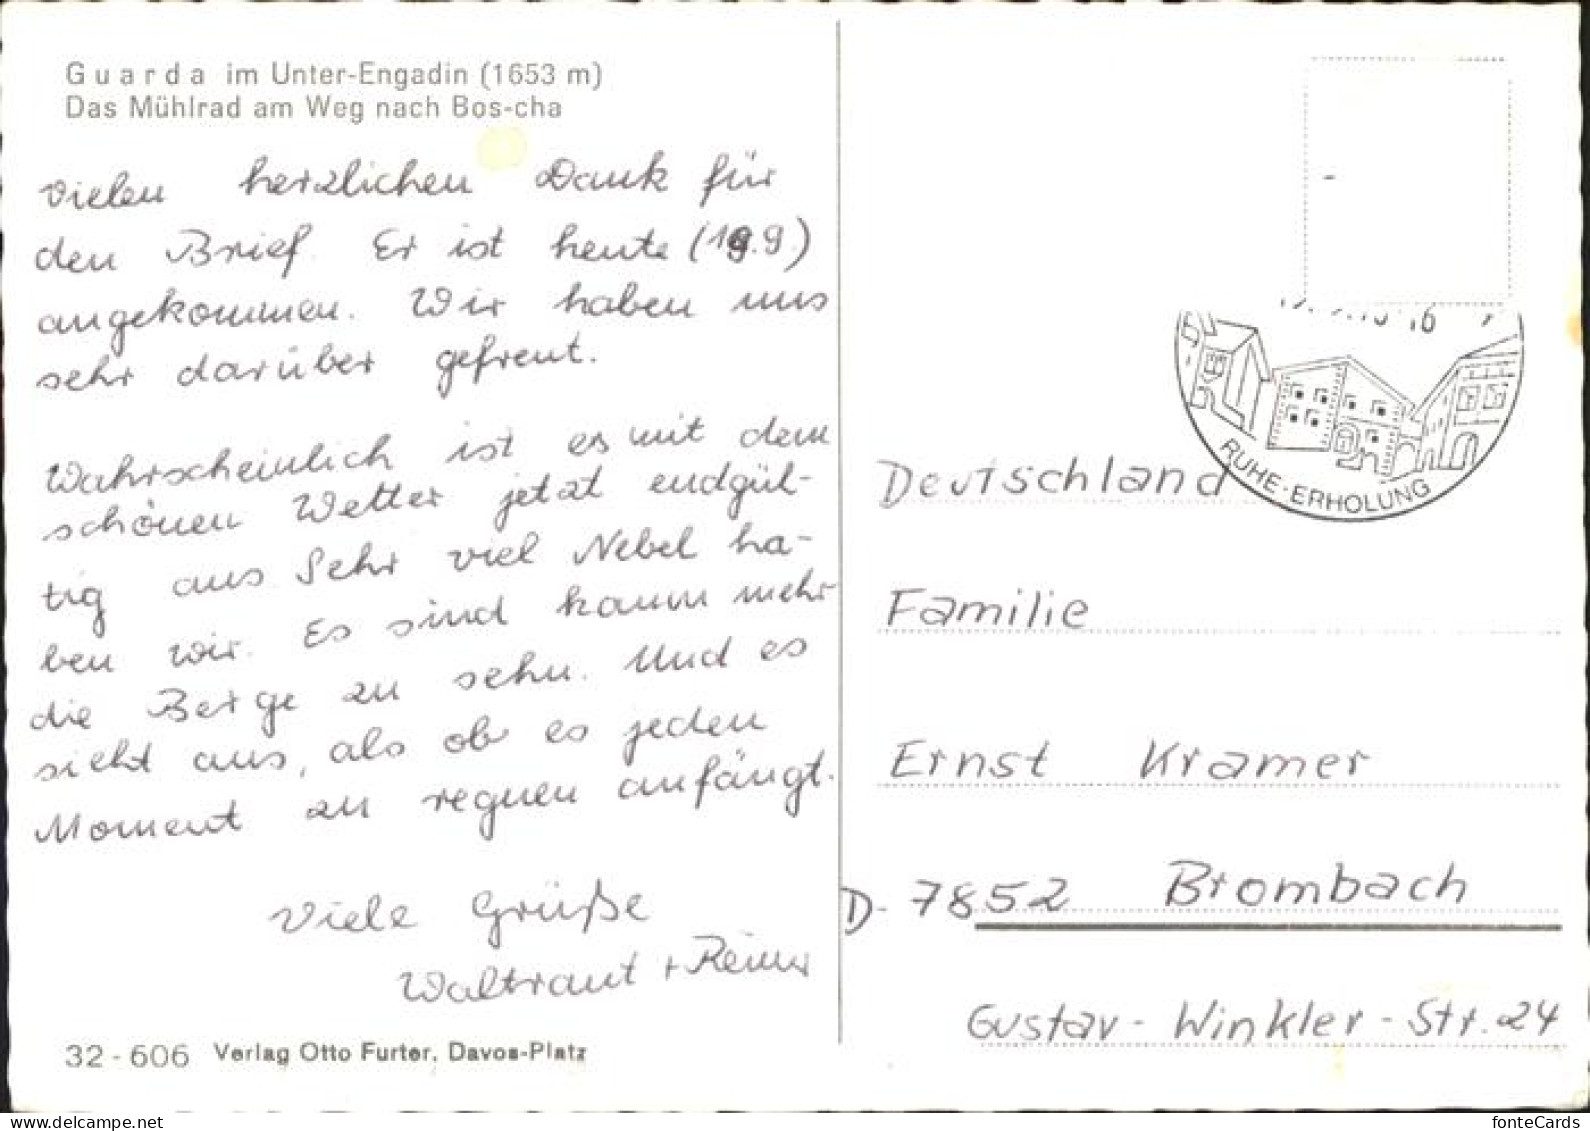 Guarda im Unter-Engadin (1653 m)
Das Mühlrad am Weg nach Bos-cha
Vielen herzlichen Dank für
den Brief. Er ist heute (19.9.)
angekommen. Wir haben uns
sehr darüber gefreut.
Wahrscheinlich ist es mit dem
schönen Wetter jetzt endgül-
tig aus. Sehr viel Nebel ha-
ben wir. Es sind kaum mehr
die Berge zu sehn. Und es
sieht aus, als ob es jeden
Moment zu regnen anfängt.
Viele Grüße
Waltraut +
32-606 Verlag Otto Furter, Davos-Platz
RUHE-ERHOLUNG
Deutschland
Familie
Ernst Kramer
D-7852 Brombach
Gustav-Winkler-Str. 24
fonteCards